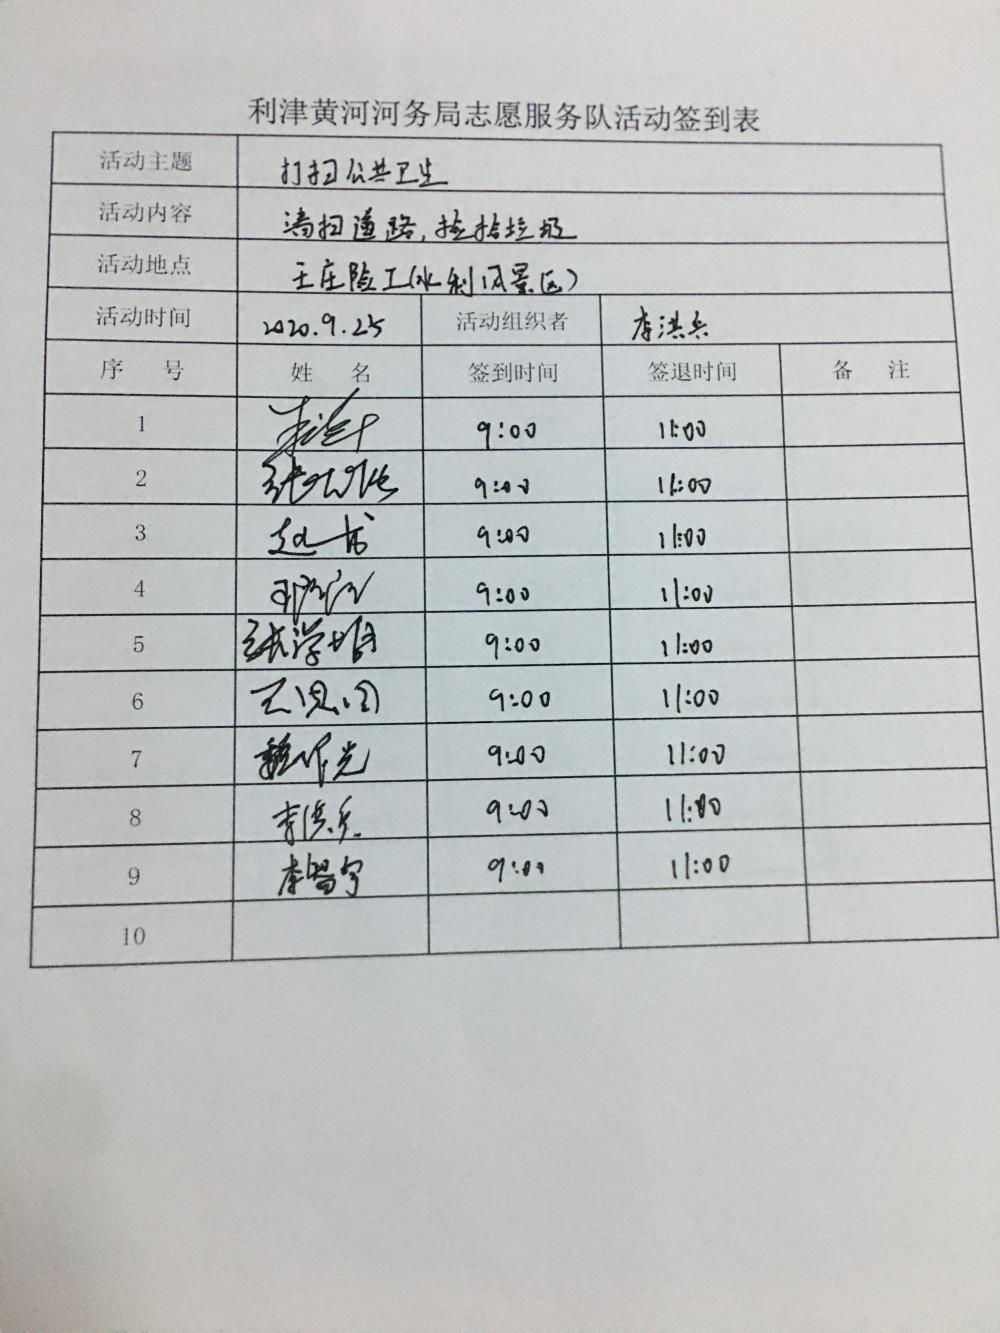 利津黄河河务局志愿服务队活动签到表
活动主题 打扫公共卫生
活动内容 清扫道路,捡拾垃圾
活动地点 王庄险工(水利风景区)
活动时间 2020.9.25 活动组织者 李洪兵
序 号 姓 名 签到时间 签退时间 备 注
1 9:00 11:00
2 张 9:00 11:00
3 赵 9:00 11:00
4 王 9:00 11:00
5 张学 9:00 11:00
6 王 9:00 11:00
7 光 9:00 11:00
8 李洪兵 9:00 11:00
9 李 宇 9:00 11:00
10